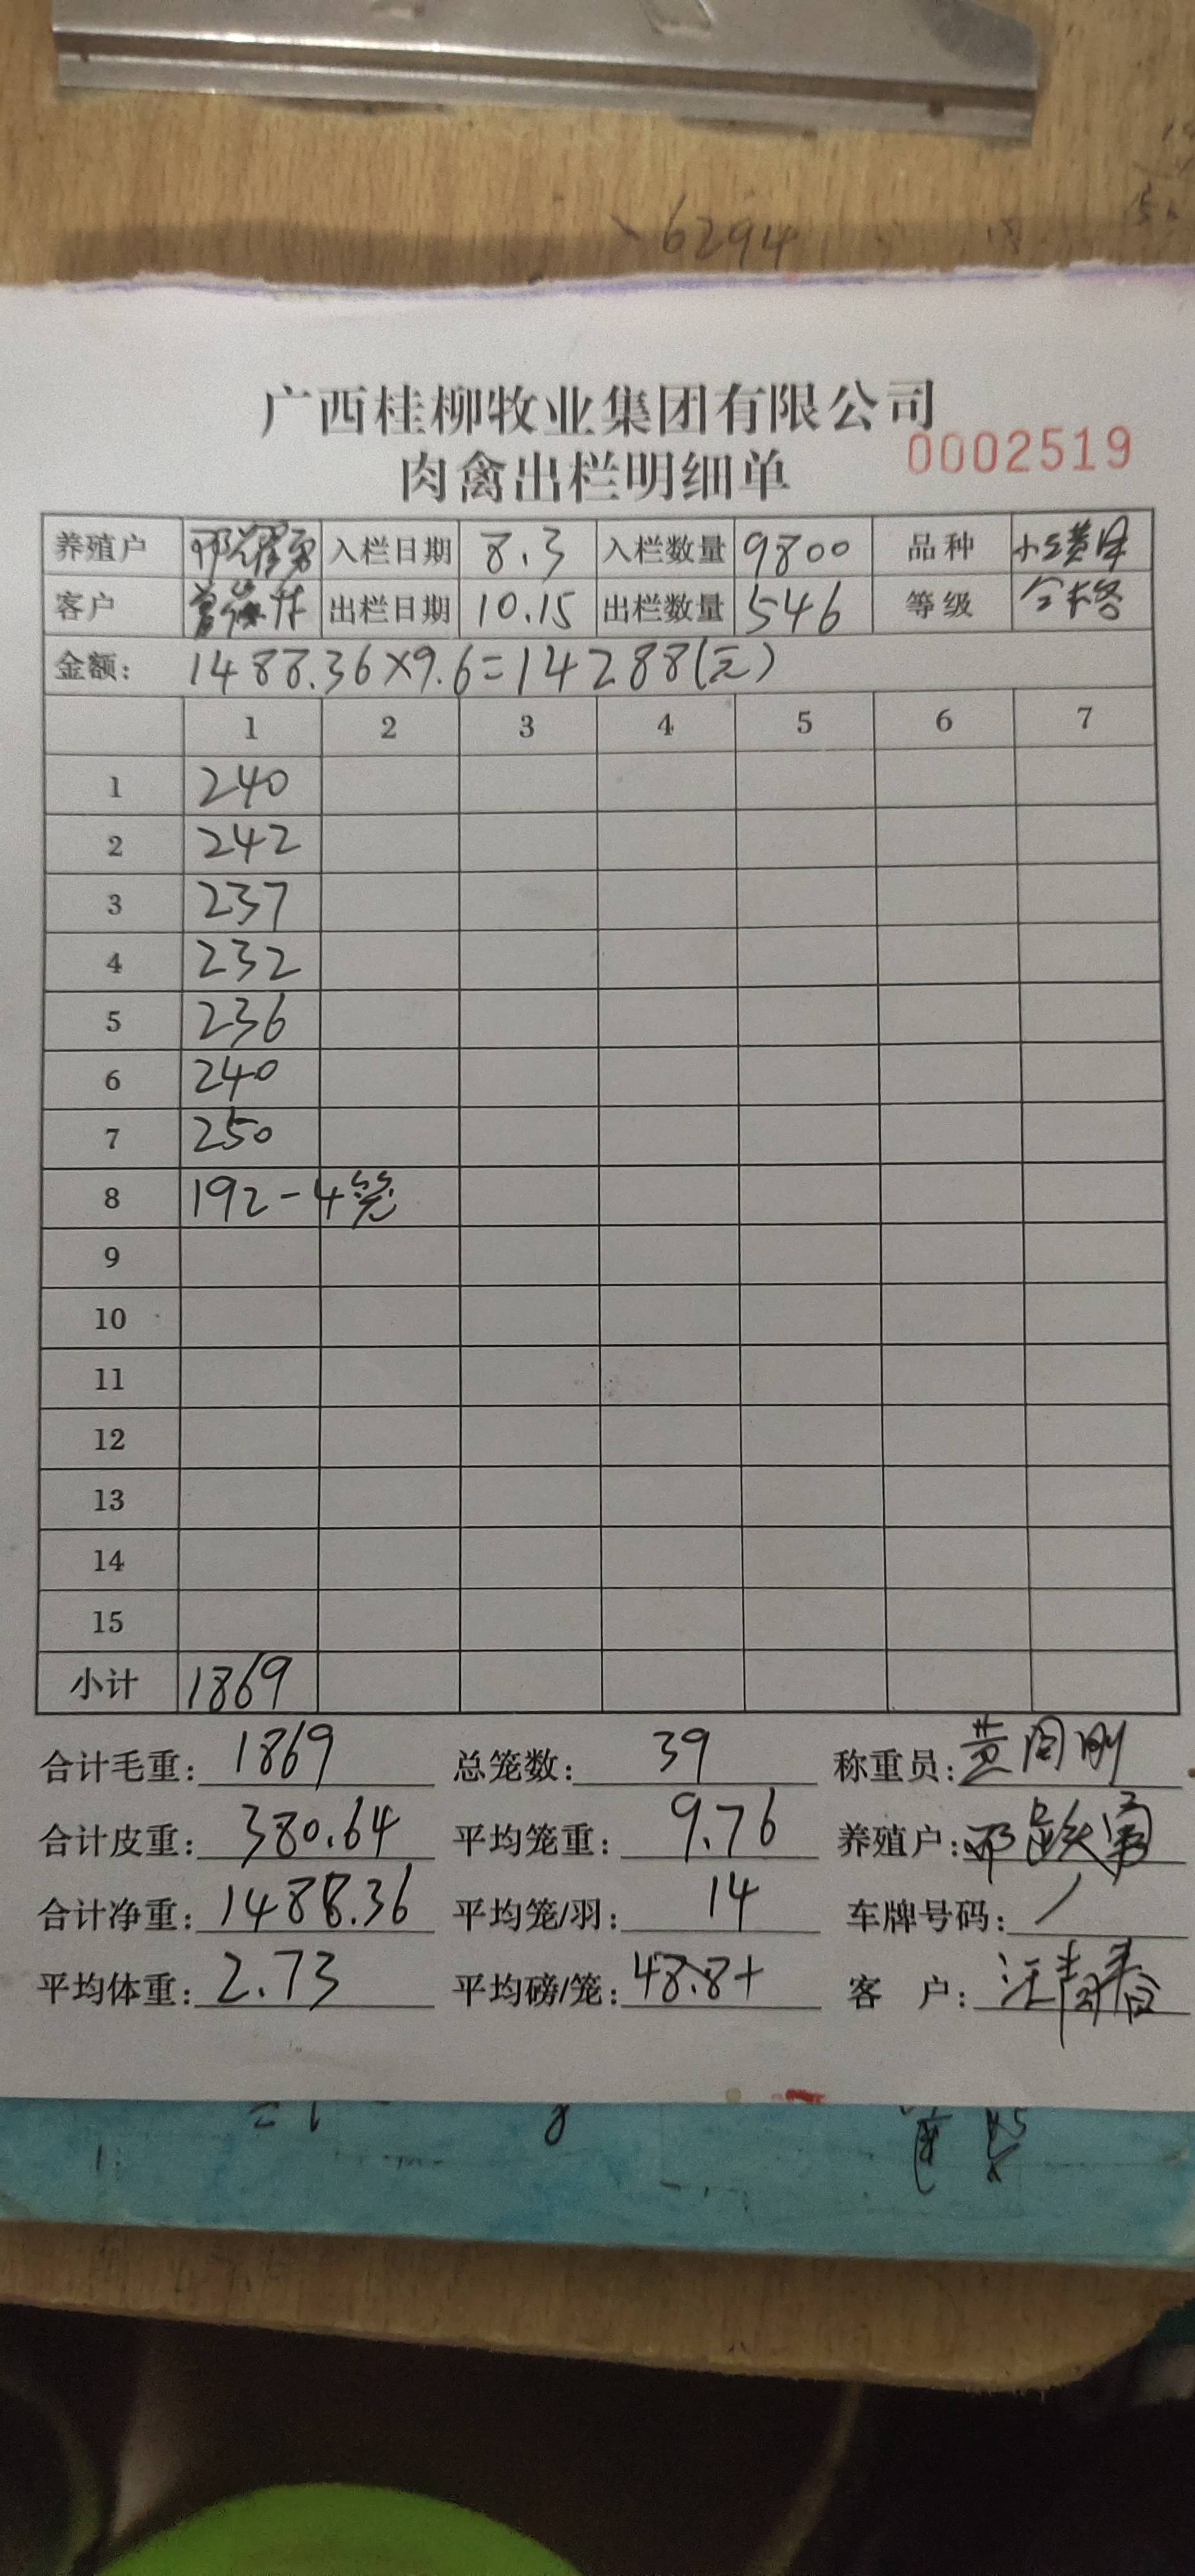 6294
广西桂柳牧业集团有限公司
肉禽出栏明细单 0002519
养殖户 入栏日期 8.3 入栏数量 9800 品种
客户 出栏日期 10.15 出栏数量 546 等级 合格
金额: 1488.36×9.6=14288(元)
1 2 3 4 5 6 7
1 240
2 242
3 237
4 232
5 236
6 240
7 250
8 192-4笼
9
10
11
12
13
14
15
小计 1869
合计毛重: 1869 总笼数: 39 称重员: 黄周刚
合计皮重: 380.64 平均笼重: 9.76 养殖户:
合计净重: 1488.36 平均笼/羽: 14 车牌号码: /
平均体重: 2.73 平均磅/笼: 48.8+ 客 户: